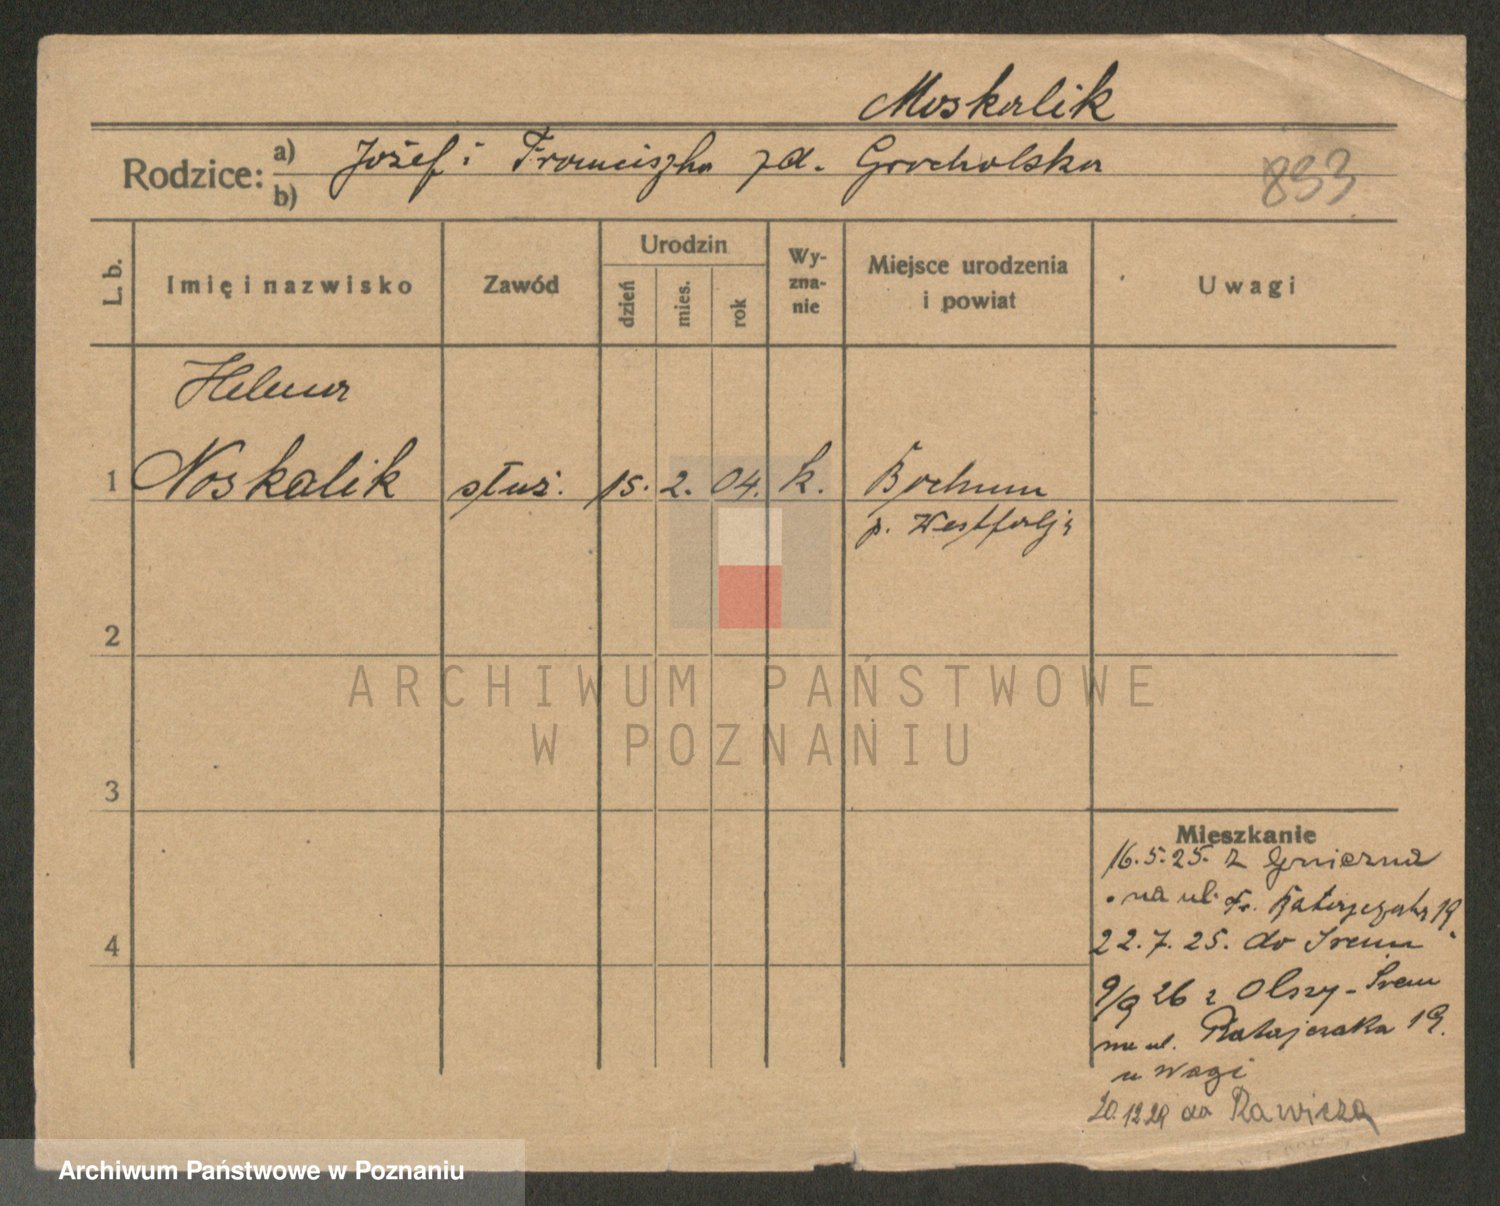 Moskalik
Rodzice: a) Józef i Franciszka zd. Grocholska
b)
833
L. b.
Imię i nazwisko
Zawód
Urodzin
dzień
mies.
rok
Wy-
zna-
nie
Miejsce urodzenia
i powiat
Uwagi
Helena
1 Noskalik służ. 15. 2. 04. k. Bochum
p. Westfalja
2
3
4
Mieszkanie
16.5.25. z Gniezna
na ul. Fr. Ratajczaka 19
22.7.25. do Śremu
9/9 26 z Olszy - Śrem
na ul. Ratajczaka 19.
u Wagi
20.12.29 do Rawicza
ARCHIWUM PAŃSTWOWE
W POZNANIU
Archiwum Państwowe w Poznaniu